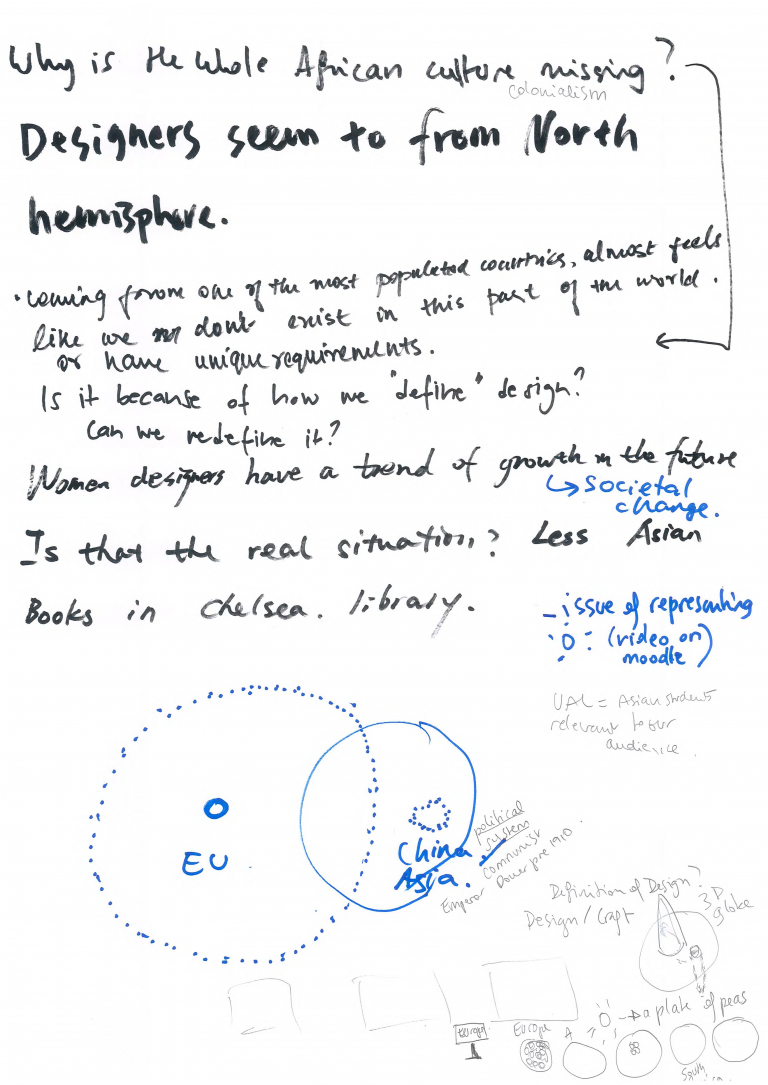 Why is the whole African culture missing?
colonialism
Designers seem to from North
hemisphere.
· coming from one of the most populated countries, almost feels
like we dont exist in this part of the world.
or have unique requirements.
Is it because of how we "define" design?
Can we redefine it?
Women designers have a trend of growth in the future
↳ societal
change.
Is that the real situation? Less Asian
Books in Chelsea. library.
- issue of representing
(video on
moodle)
UAL = Asian students
relevant to our
audience.
EU
China
Asia.
political
system
communist
Emperor Power pre 1910
Definition of Design?
Design / Craft
3D
globe
a plate of peas
Europe
Europe
A
South